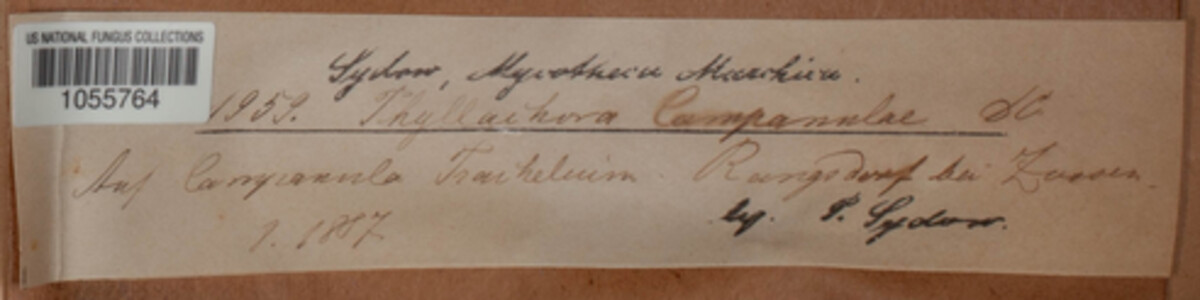 US NATIONAL FUNGUS COLLECTIONS
1055764
Sydow, Mycotheca Marchica.
1959. Phyllachora Campanulae DC
Auf Campanula Trachelium. Rangsdorf bei Zossen.
7. 1887
leg. P. Sydow.